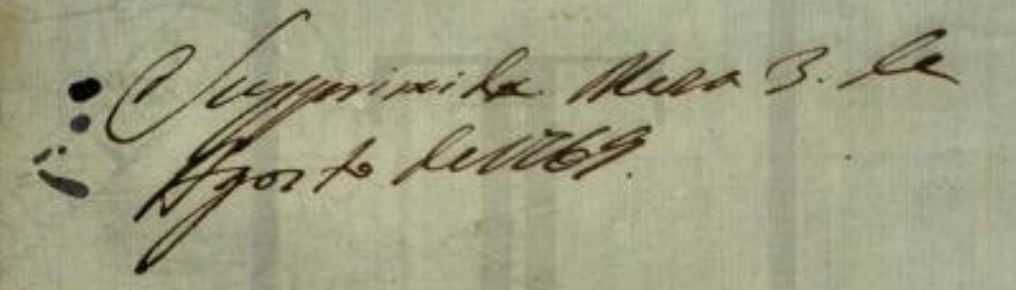 Supprimida Mesa 3. de
Agosto de 1769.